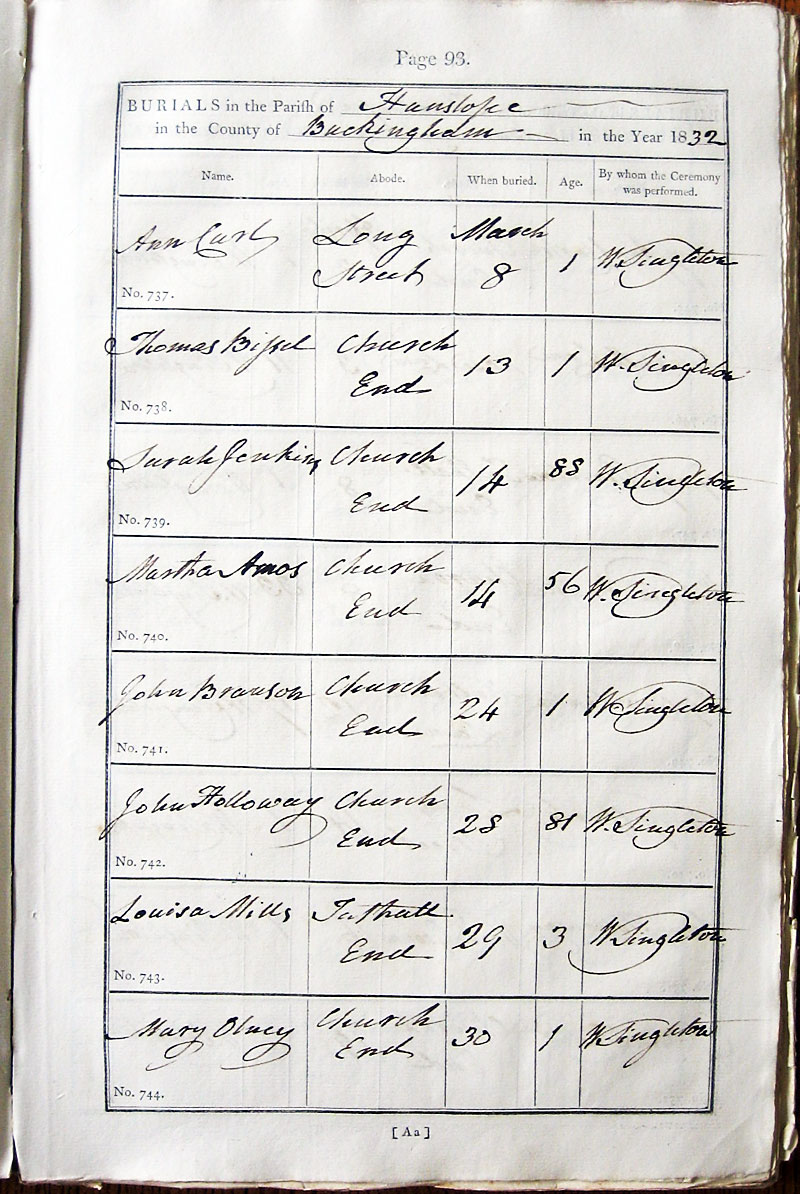 Page 93.
BURIALS in the Parish of Hanslope
in the County of Buckingham in the Year 1832
Name. Abode. When buried. Age. By whom the Ceremony was performed.
Ann Curl Long Street March 8 1 W. Singleton
No. 737.
Thomas Bissel Church End 13 1 W. Singleton
No. 738.
Sarah Jenkins Church End 14 88 W. Singleton
No. 739.
Martha Amos Church End 14 56 W. Singleton
No. 740.
John Branson Church End 24 1 W. Singleton
No. 741.
John Holloway Church End 28 81 W. Singleton
No. 742.
Louisa Mills Tathall End 29 3 W. Singleton
No. 743.
Mary Olney Church End 30 1 W. Singleton
No. 744.
[Aa]